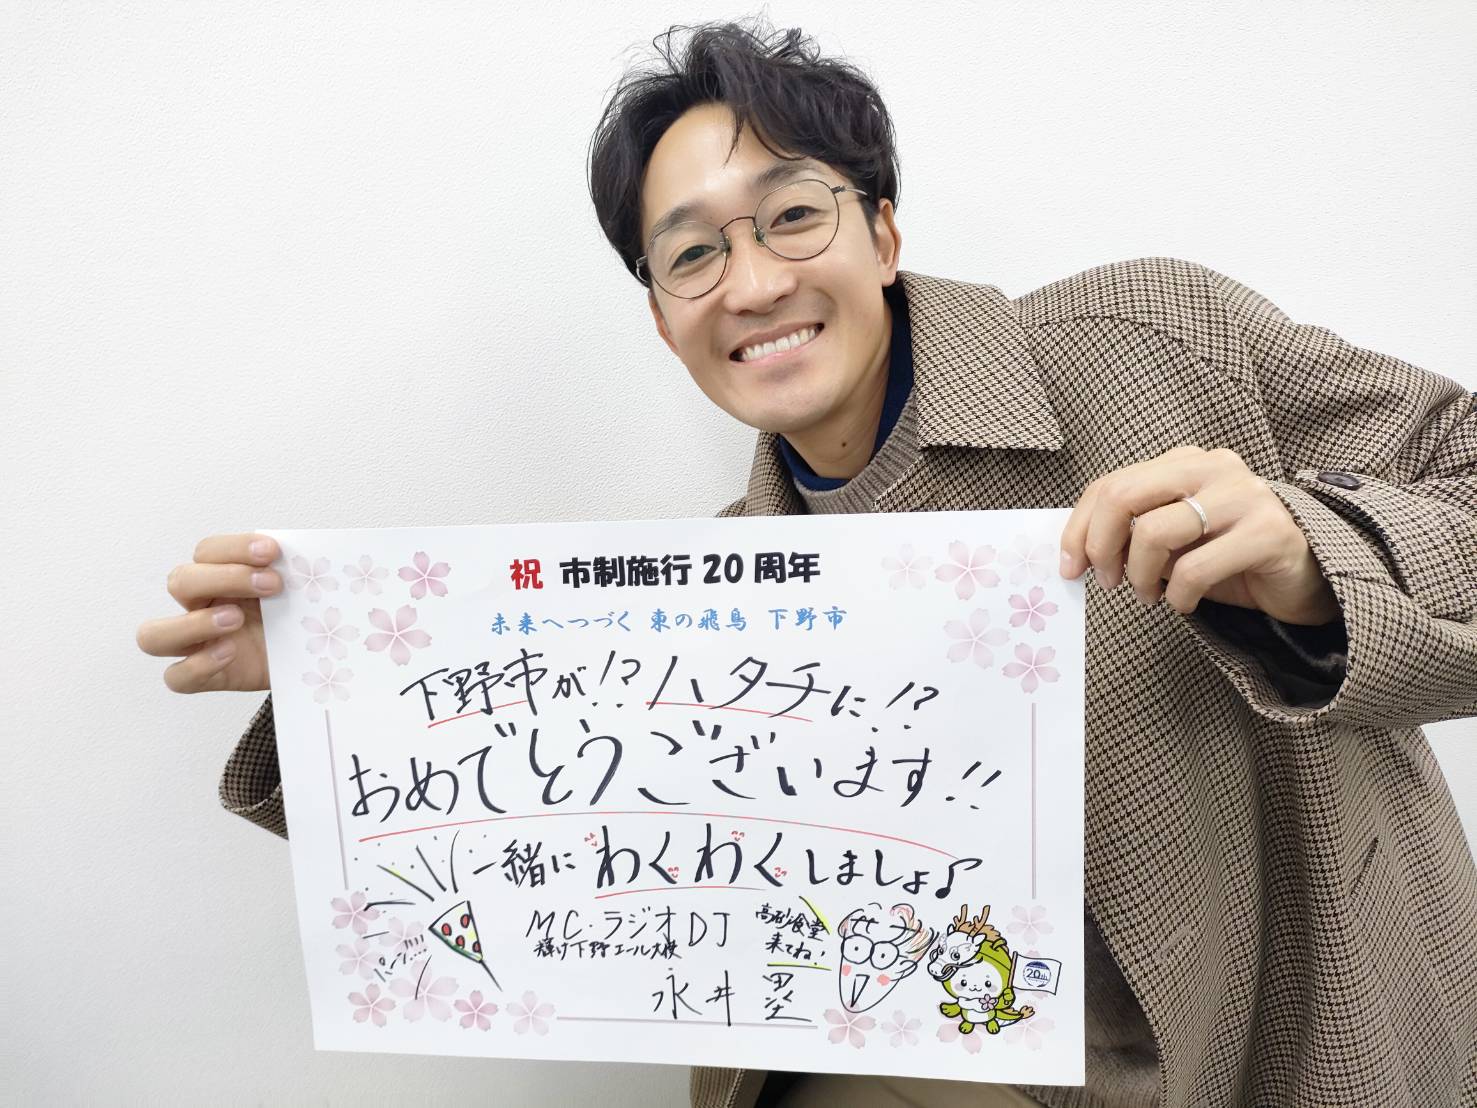 祝 市制施行20周年
未来へつづく 東の飛鳥 下野市
下野市が!? ハタチに!?
おめでとうございます!!
一緒にわくわくしましょ♪
パーン!!!…
MC・ラジオDJ
輝け下野エール大使
永井 塁
高砂食堂
来てね!
20th